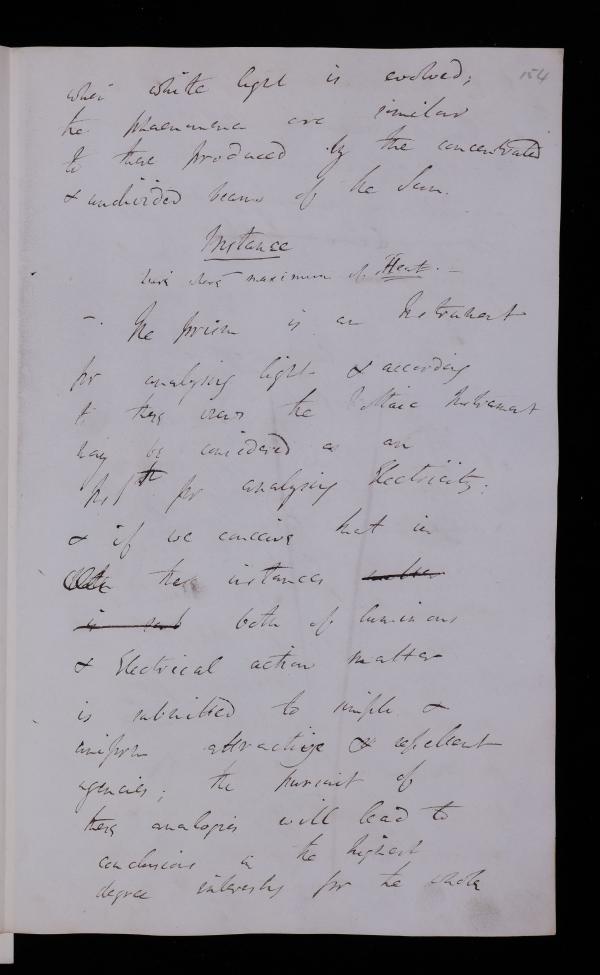 154
when white light is evolved;
the phaenomena are similar
to those produced by the concentrated
& undivided beams of the Sun.
Instance
maximum of Heat. –
–. The prism is an Instrument
for analysing light & according
to these views the Voltaic Instrument
may be considered as an
for analysing Electricity;
& if we conceive that in
these instances
both of luminous
& Electrical action matter
is submitted to simple &
uniform attractive & repellent
agencies; the pursuit of
these analogies will lead to
conclusions in the highest
degree interesting for the whole